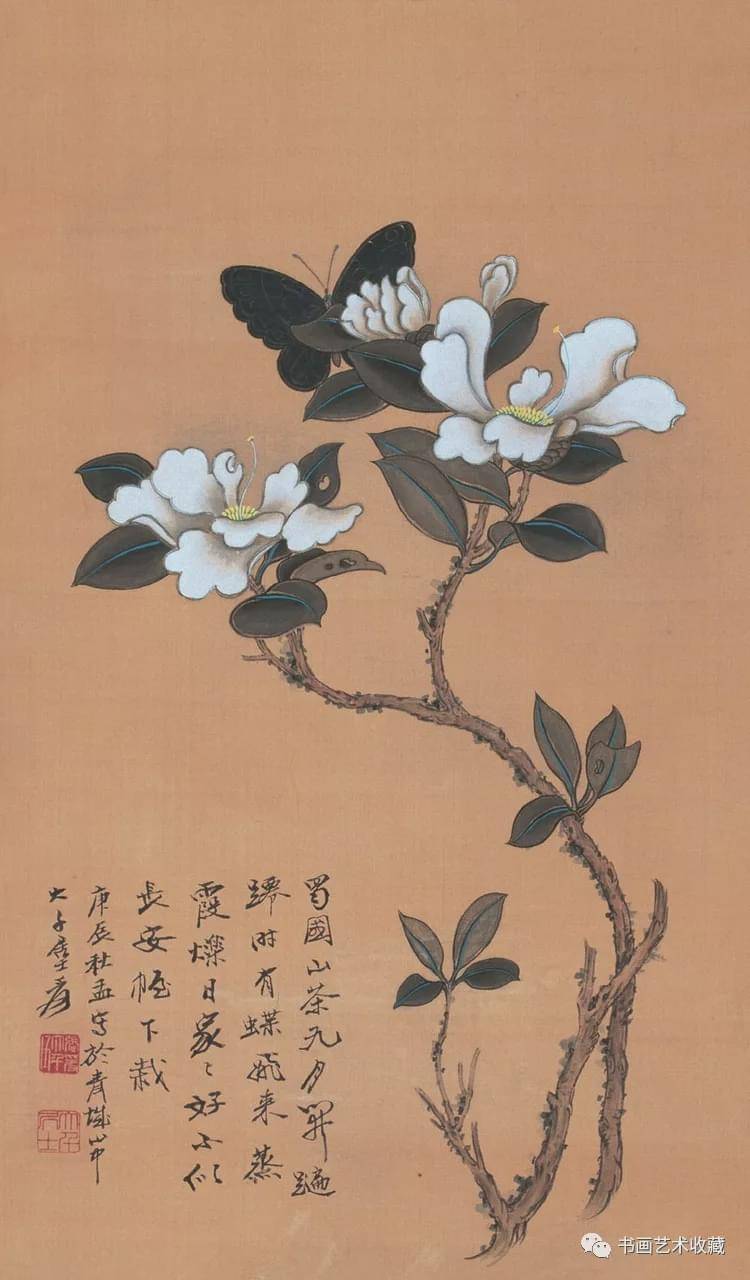 蜀國山茶九月開蹁
躚時有蝶飛來蒸
霞爍日家〻好不似
長安幄下栽
庚辰秋孟寫於青城山中
大千居士爰
大千居士
书画艺术收藏